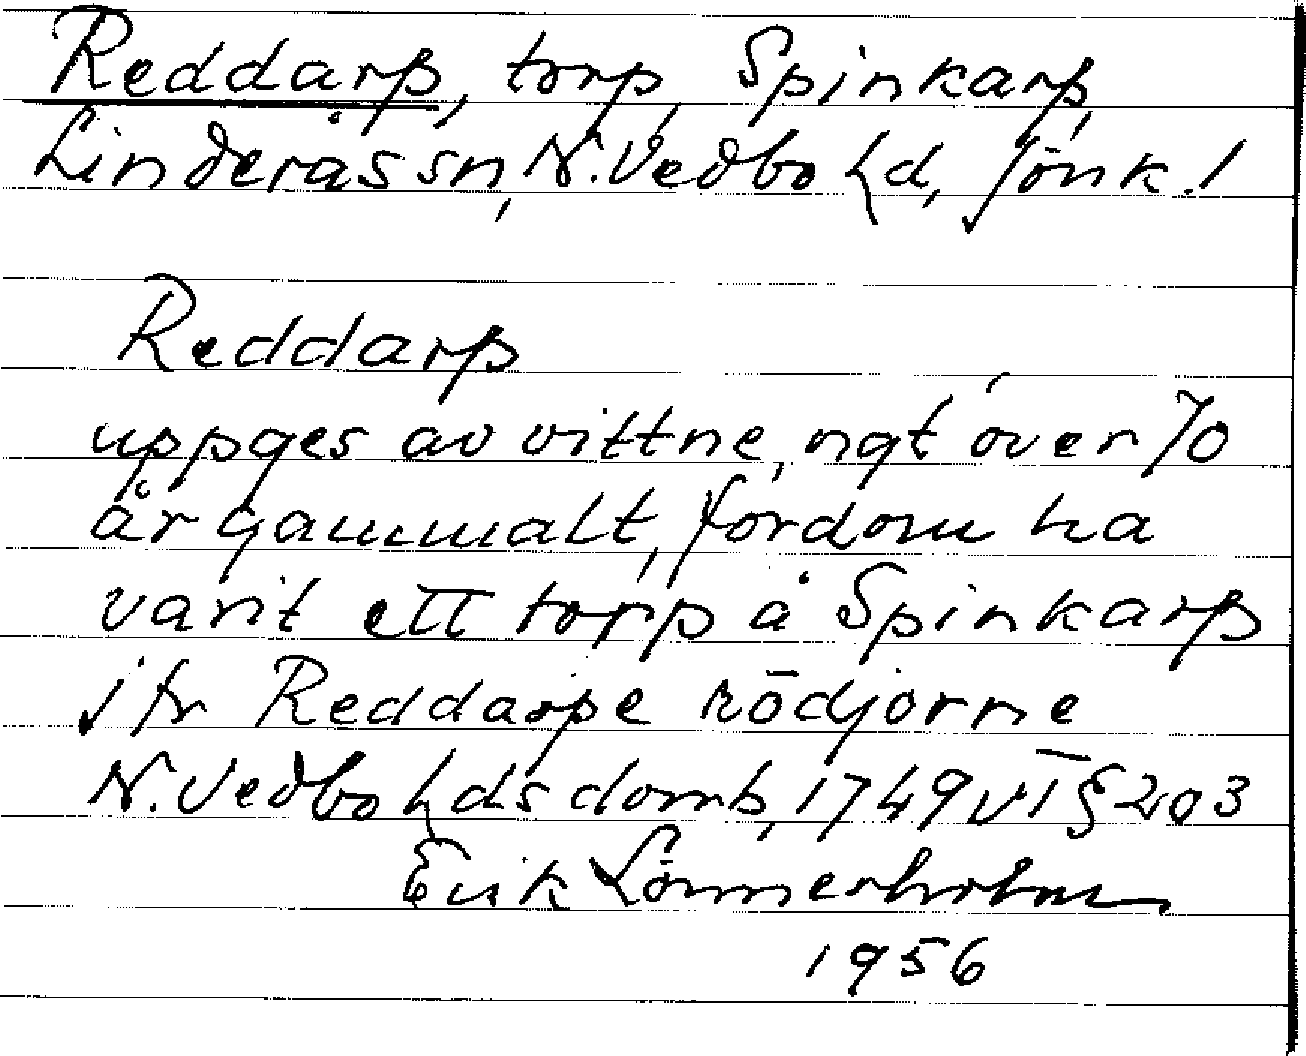 Reddarp, torp, Spinkarp,
Linderås sn, N. Vedbo hd, Jönk. l
Reddarp
uppges av vittne, ngt över 70
år gammalt, fordom ha
varit ett torp å Spinkarp
jfr Reddarpe rödjorne
N. Vedbo hds domb, 1749 VT § 203
Erik Lönnerholm
1956